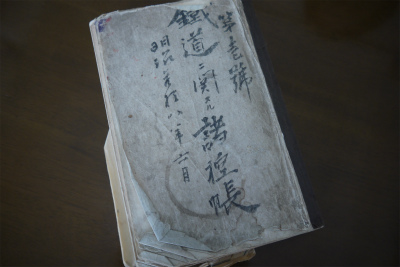 第壱號
鐵道ニ関スル諸控帳
明治参拾八年六月